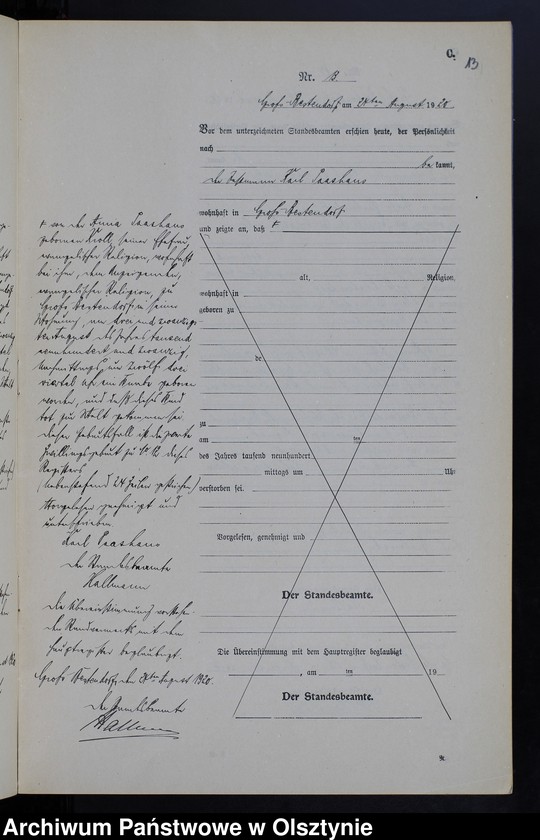 C. 13
Nr. 13.
Groß Bestendorf am 24ten August 1920
Vor dem unterzeichneten Standesbeamten erschien heute, der Persönlichkeit
nach
be kannt,
der Karl Paashaus
wohnhaft in Groß Bestendorf
und zeigte an, daß
alt, Religion,
wohnhaft in
geboren zu
de
zu
am ten
des Jahres tausend neunhundert
mittags um Uhr
verstorben sei.
Vorgelesen, genehmigt und
Der Standesbeamte.
Die Übereinstimmung mit dem Hauptregister beglaubigt
, am ten 19
Der Standesbeamte.
von der Anna Paashaus
gebornen Kroll, seiner Ehefrau,
evangelischer Religion, wohnhaft
bei ihm, dem Anzeigenden,
evangelischer Religion, zu
Groß Bestendorf in seiner
Wohnung, am drei und zwanzig-
ten August des Jahres tausend
neunhundert und zwanzig,
Nachmittags um zwölf drei
viertel Uhr ein Knabe geboren
worden, und daß dieses Kind
tot zur Welt gekommen sei
dieser Geburtsfall ist die zweite
Zwillingsgeburt zu Nr 12 dieses
Registers
(Nebenstehend 24 Zeilen gestrichen)
Vorgelesen genehmigt und
unterschrieben.
Karl Paashaus
Der Standesbeamte
Hallmann
Die Übereinstimmung vorstehen-
den Randvermerks mit dem
Hauptregister beglaubigt.
Groß Bestendorf, den 24ten August 1920.
Der Standesbeamte
Hallmann
Archiwum Państwowe w Olsztynie